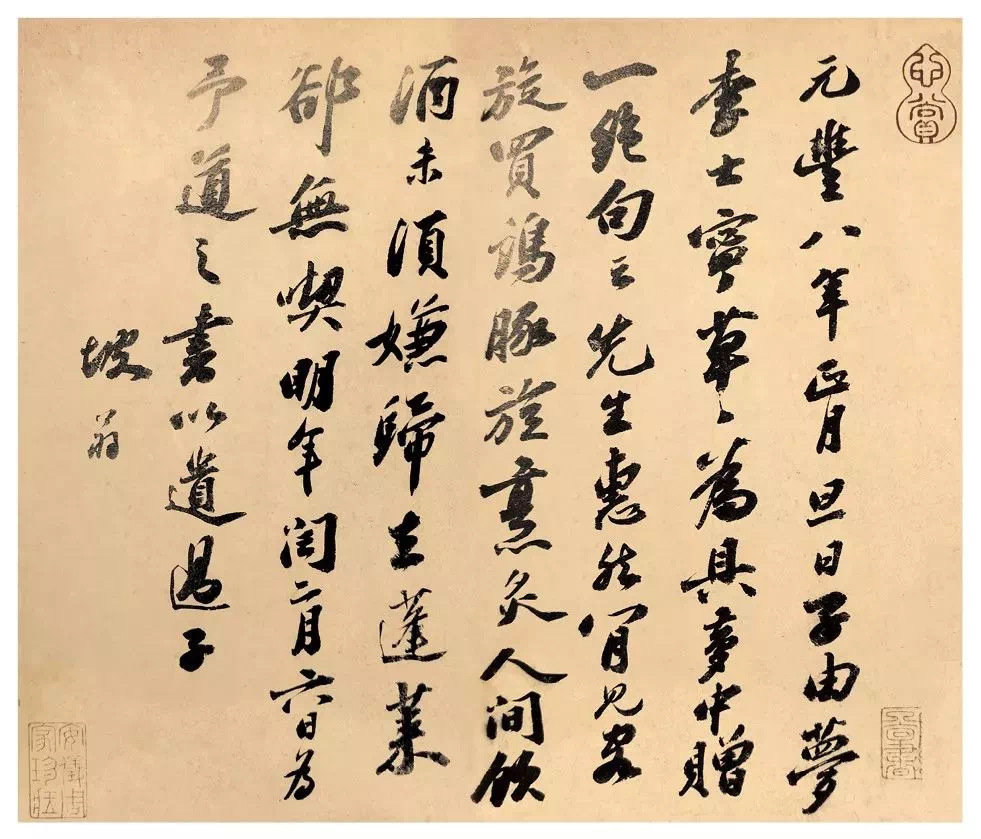 心賞
元豐八年正月旦日子由夢
李士寧草〻為具夢中贈
一絕句云先生惠然肯見客
旋買鷄豚旋烹炙人間飲
酒未須嫌歸去蓬萊
卻無喫明年閏二月六日為
予道之書以遺過子
坡翁
安儀周家珍藏